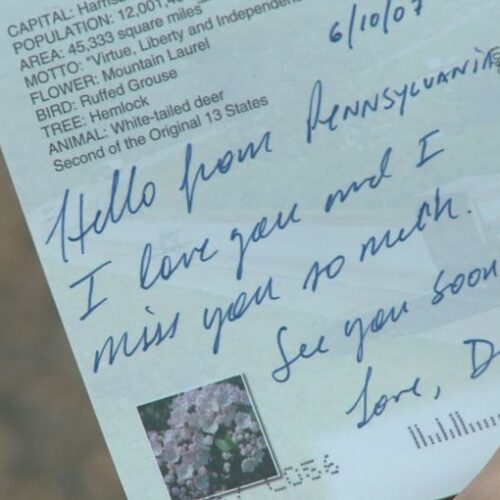 CAPITAL: Harris
POPULATION: 12,001,4
AREA: 45,333 square miles
MOTTO: "Virtue, Liberty and Independen
FLOWER: Mountain Laurel
BIRD: Ruffed Grouse
TREE: Hemlock
ANIMAL: White-tailed deer
Second of the Original 13 States
6/10/07
Hello from PENNSYLVANIA
I love you and I
miss you so much.
See you soon
Love, D
0056